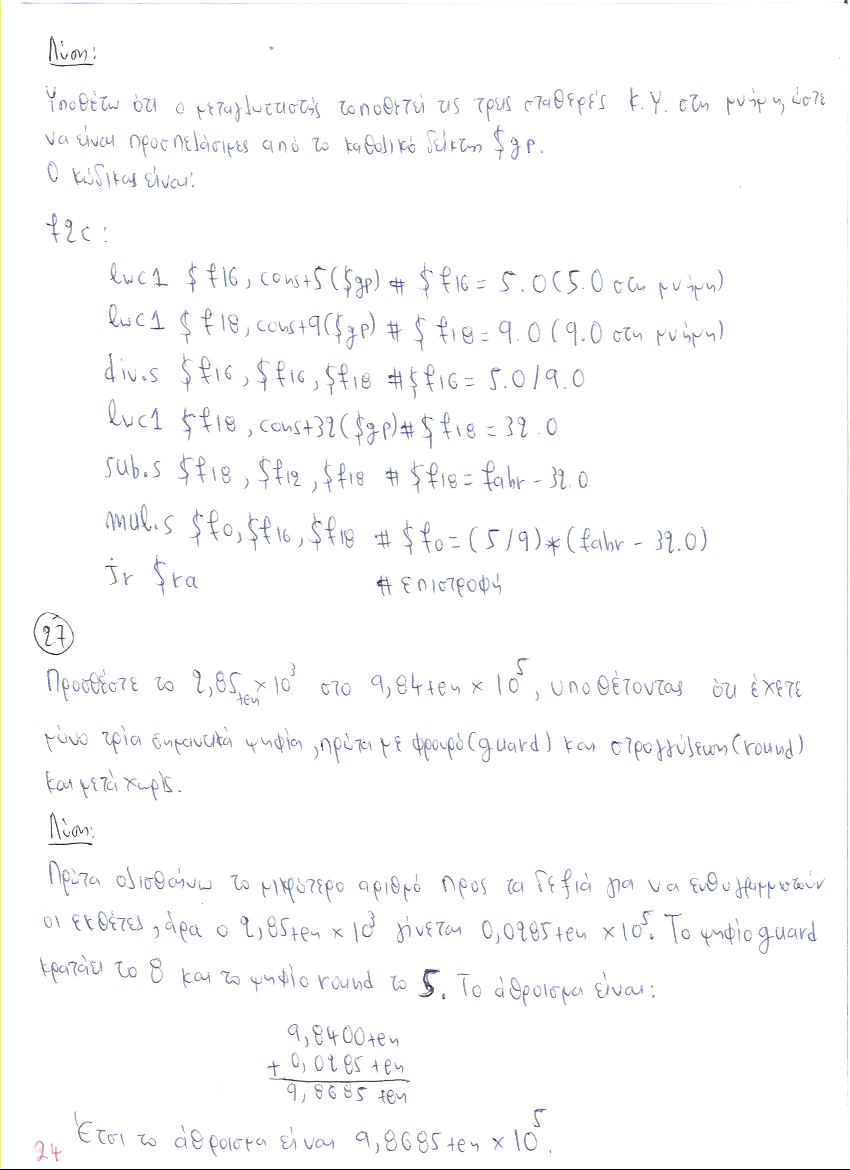 Λύση:
Υποθέτω ότι ο μεταγλωττιστής τοποθετεί τις τρεις σταθερές Κ.Υ. στη μνήμη, ώστε
να είναι προσπελάσιμες από το καθολικό δείκτη $gp.
Ο κώδικας είναι:
f2c:
lwc1 $f16, const5($gp) # $f16 = 5.0 (5.0 στη μνήμη)
lwc1 $f18, const9($gp) # $f18 = 9.0 (9.0 στη μνήμη)
div.s $f16, $f16, $f18 # $f16 = 5.0/9.0
lwc1 $f18, const32($gp) # $f18 = 32.0
sub.s $f18, $f12, $f18 # $f18 = fahr - 32.0
mul.s $f0, $f16, $f18 # $f0 = (5/9)*(fahr - 32.0)
jr $ra # επιστροφή
27
Προσθέστε το 2,85ten × 10³ στο 9,84ten × 10⁵, υποθέτοντας ότι έχετε
μόνο τρία σημαντικά ψηφία, πρώτα με φρουρό(guard) και στρογγύλευση(round)
και μετά χωρίς.
Λύση:
Πρώτα ολισθαίνω το μικρότερο αριθμό προς τα δεξιά για να ευθυγραμμιστούν
οι εκθέτες, άρα ο 2,85ten × 10³ γίνεται 0,0285ten × 10⁵. Το ψηφίο guard
κρατάει το 8 και το ψηφίο round το 5. Το άθροισμα είναι:
9,8400ten
+ 0,0285ten
9,8685ten
Έτσι το άθροισμα είναι 9,8685ten × 10⁵.
24